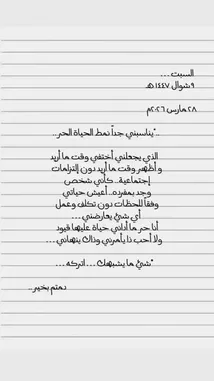 السبت ...
٩ شوال ١٤٤٧ هـ
٢٨ مارس ٢٠٢٦م
"يناسبني جداً نمط الحياة الحر ..
الذي يجعلني أختفي وقت ما أريد
و أظهر وقت ما أريد دون إلتزامات
إجتماعية .. كأني شخص
وجد بمفرده .. أعيش حياتي
وفقاً للحظات دون تكلف وعمل
أي شيءٍ يعارضني ...
أنا حر ما أداني حياة عليها قيود
ولا أحب ذا يأمرني وذاك ينهاني ...
"شيءٍ ما يشبهك ... اتركه ...
دمتم بخير ..